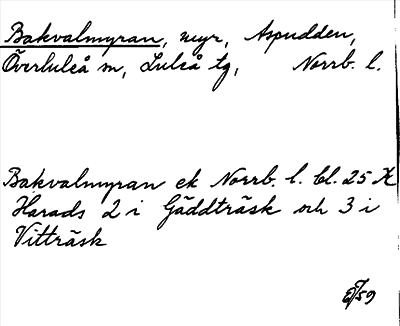 Bakvalmyran, myr, Aspudden,
Överluleå sn, Luleå tg, Norrb. l.
Bakvalmyran ek Norrb. l. bl. 25 K
Harads 2 i Gäddträsk och 3 i
Vitträsk